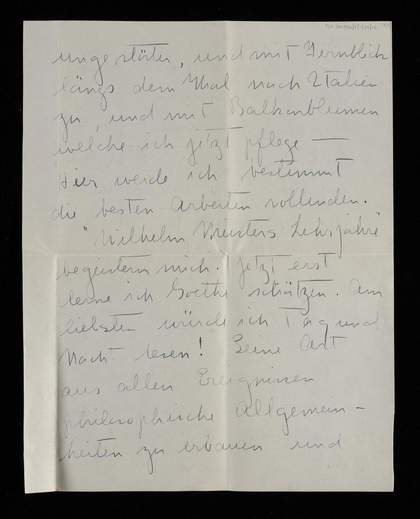 ungestört, und mit Fernblick
längs dem Thal nach Italien
zu, und mit Balkonblumen
welche ich jetzt pflege —
Hier werde ich bestimmt
die besten Arbeiten vollenden.
"Wilhelm Meisters Lehrjahre"
begeistern mich. Jetzt erst
lerne ich Goethe schätzen. Am
liebsten würde ich Tag und
Nacht lesen! Seine Art
aus allen Ereignissen
philosophische Allgemein-
heiten zu erbauen und